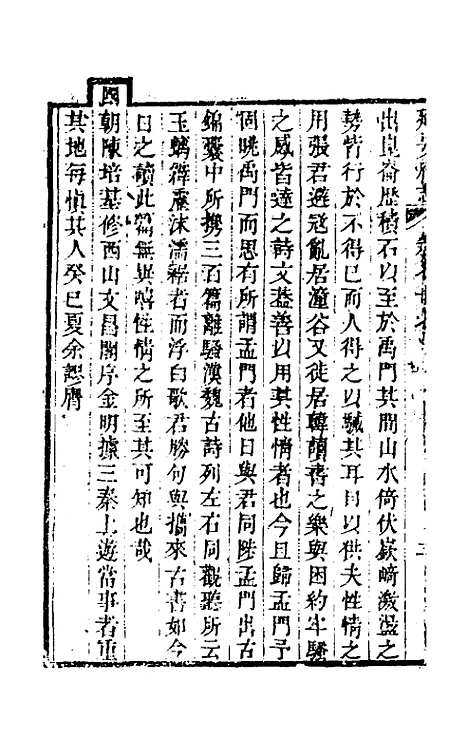 出崑崙歷積石以至於禹門其間山水倚伏嶔崎激溢之
勢皆行於不得已而人得之以駴其耳目以供夫性情之
用張君避寇亂居潼谷又徙居韓讀書之樂與困約牢騷
之感皆達之詩文葢善以用其性情者也今且歸孟門予
囘眺禹門而思有所謂孟門者他日與君同陟孟門出古
錦囊中所携三百篇離騷漢魏古詩列左右同觀聽所云
玉螭 沫濡 者而浮白歌君勝句與攜來古書如今
日之讀此篇無異嘻性情之所至其可知也哉
國朝陳培基修西山文昌閣序金明據三秦上遊當事者重
其地每慎其人癸巳夏余謬膺